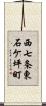 西七条東
石ケ坪町